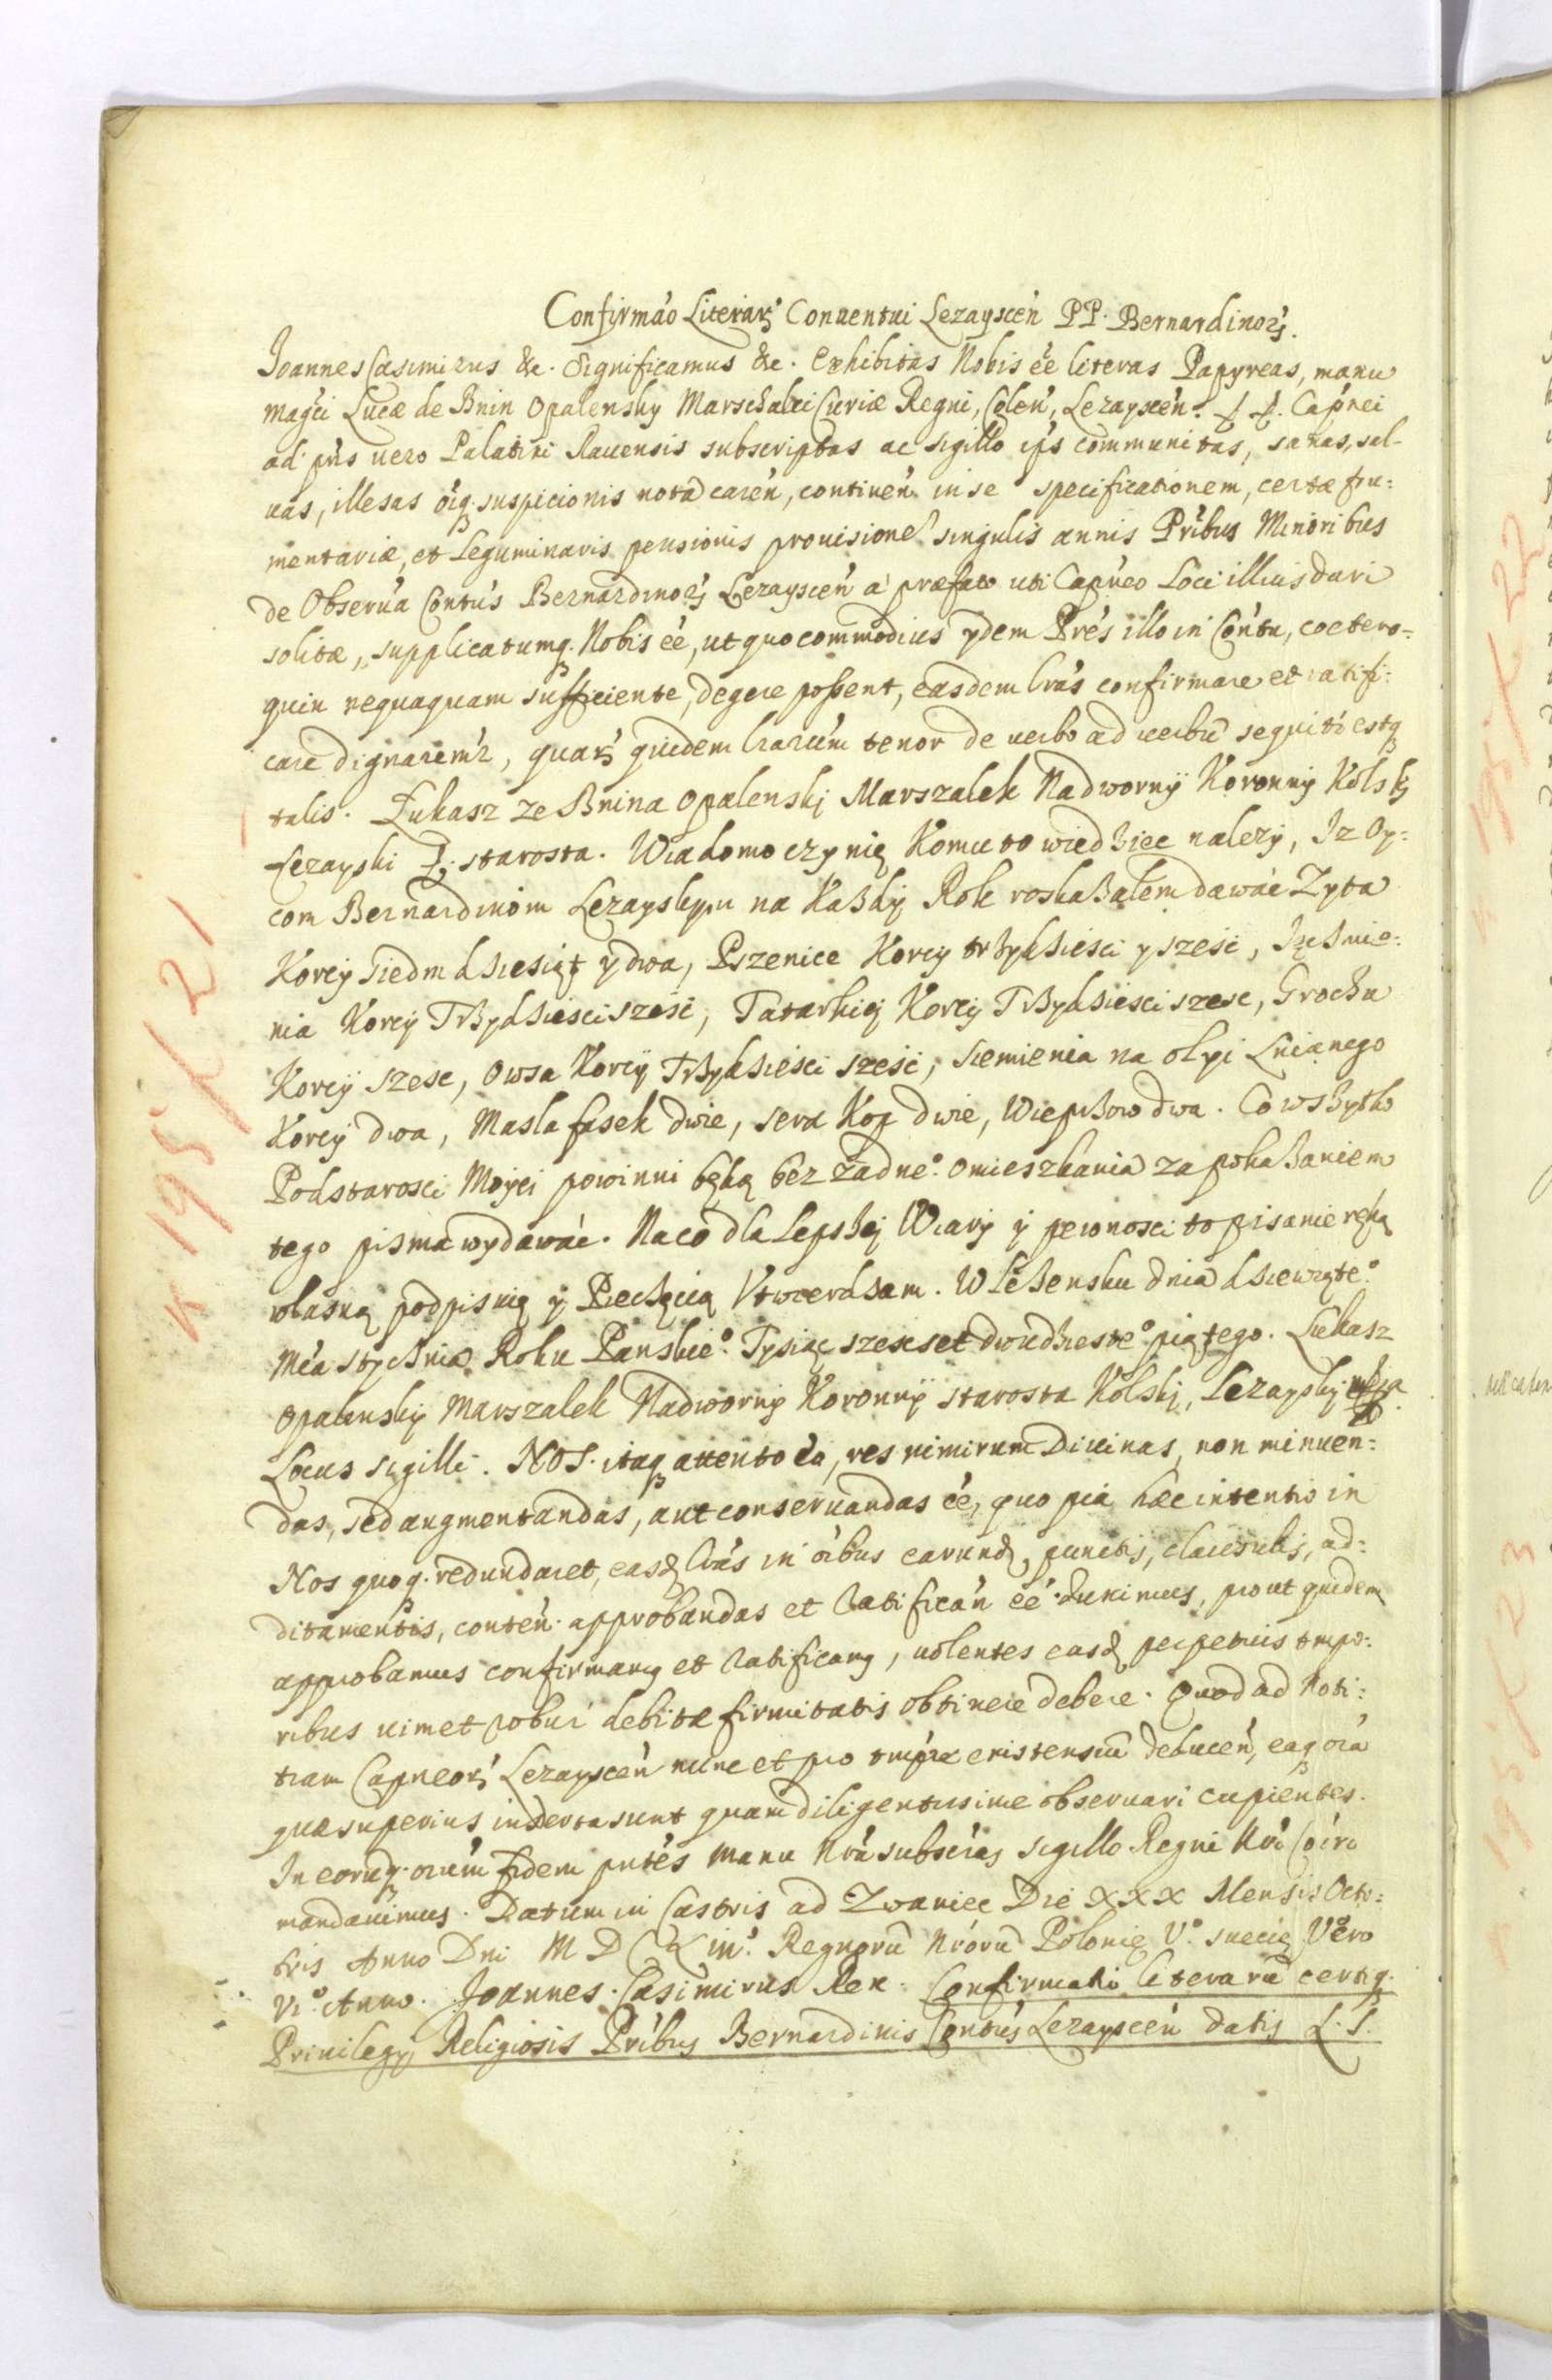 Confirmão Literarꝝ Conuentui Lezayscen̄ PP. Bernardinoꝝ.
Joannes Casimirus &c. Significamus &c. Exhibitas Nobis ee literas Papyreas, manu
mag̃ci Lucæ de Bnin Opalensky Marschalci Curiæ Regni, Colen̄, Lezayscen̄. Capn̄ei
ad pn̄s uero Palatini Rauensis subscriptas ac sigillo ip̄s communitas, sanas, sal-
uas, illesas oiq. suspicionis nota caren̄, continen̄ in se specificationem, certæ fru:
mentariæ, et Leguminaris pensionis prouisione singulis annis Pribus Minoribus
de Obserua Contus Bernardinoꝝ Lezayscen̄ a præfato uti Capn̄eo Loci illius dari
solitæ, supplicatumq. Nobis ee, ut quo commodius ydem Pres illo in Contu, coetero-
quin nequaquam sufficiente, degere possent, easdem lras confirmare et ratifi:
care dignaremr, quarꝝ quidem lrarum tenor de uerbo ad uerbu sequitr estq
talis. Łukasz ze Bnina Opalenskj Marszalek Nadwornÿ Koronnÿ Kolskj
Lezayski starosta. Wiadomo czynię Komu to wiedziec nalezy, Iz Oy:
com Bernardinom Lezayskym na Kazdÿ Rok roskazalem dawac Zyta
Korcÿ siedmdziesiąt y dwa, Pszenice Korcy trzydziesci y szesc, Jęczmie:
nia Korcÿ Trzydziesci szesc, Tatarkiej Korcÿ Trzydziesci szesc, Grochu
Korcÿ szesc, Owsa Korcÿ Trzydziesci szesc, siemienia na oley Lnianego
Korcÿ dwa, Masla fasek dwie, sera Kop dwie, Wieprzow dwa. Co wszytko
Podstarosci Moyei powinni będą bez zadne.o omieszkania za pokazaniem
tego pisma wydawac. Na co dla Lepszej Wiary ÿ pewnosci to pisanie ręką
wlasną podpisuię ÿ Pieczęcią Vtwierdzam. W Lezensku dnia dziewiąte.o
Mea stycznia Roku Panskie.o Tysiąc szescset dwudzieste.o piątego. Lukasz
Opalensky Marszalek Nadwornÿ Koronnÿ starosta Kolskj, Lezayskj
Locus sigilli. NOS. itaq attento eo, res nimirum Diuinas, non minuen:
das, sed augmentandas, aut conseruandas ee, quo pia hæc intentio in
Nos quoq. redundaret, easd lras in oibus earund, punctis, clausulis, ad:
ditamentis, conten̄. approbandas et Ratifican̄ ee duximus, prout quidem
approbamus confirmamq et Ratificamq, uolentes easd perpetuis tmpo:
ribus uim et robur debitæ firmitatis obtinere debere. Quod ad Noti:
tiam Capneorꝝ Lezayscen̄ nunc et pro tmpre existensiu deducen̄, eaq oia
quæ superius inserta sunt quam diligentissime obseruari cupientes.
In eorumq. oium fidem pntes manu Nra subscias sigillo Regni Nri Coiri
mandauimus. Datum in Castris ad Zwaniec Die XXX Mensis Octo:
bris Anno Dni M D C L iii.o Regnorū Nrorū Polonię V.o Suecię Vero
Vi.o Anno. Joannes Casimirus Rex. Confirmatio literarū certiq.
Priuilegÿ Religiosis Pribus Bernardinis Contus Lezayscen̄ datis L. S.
k 195 k 21